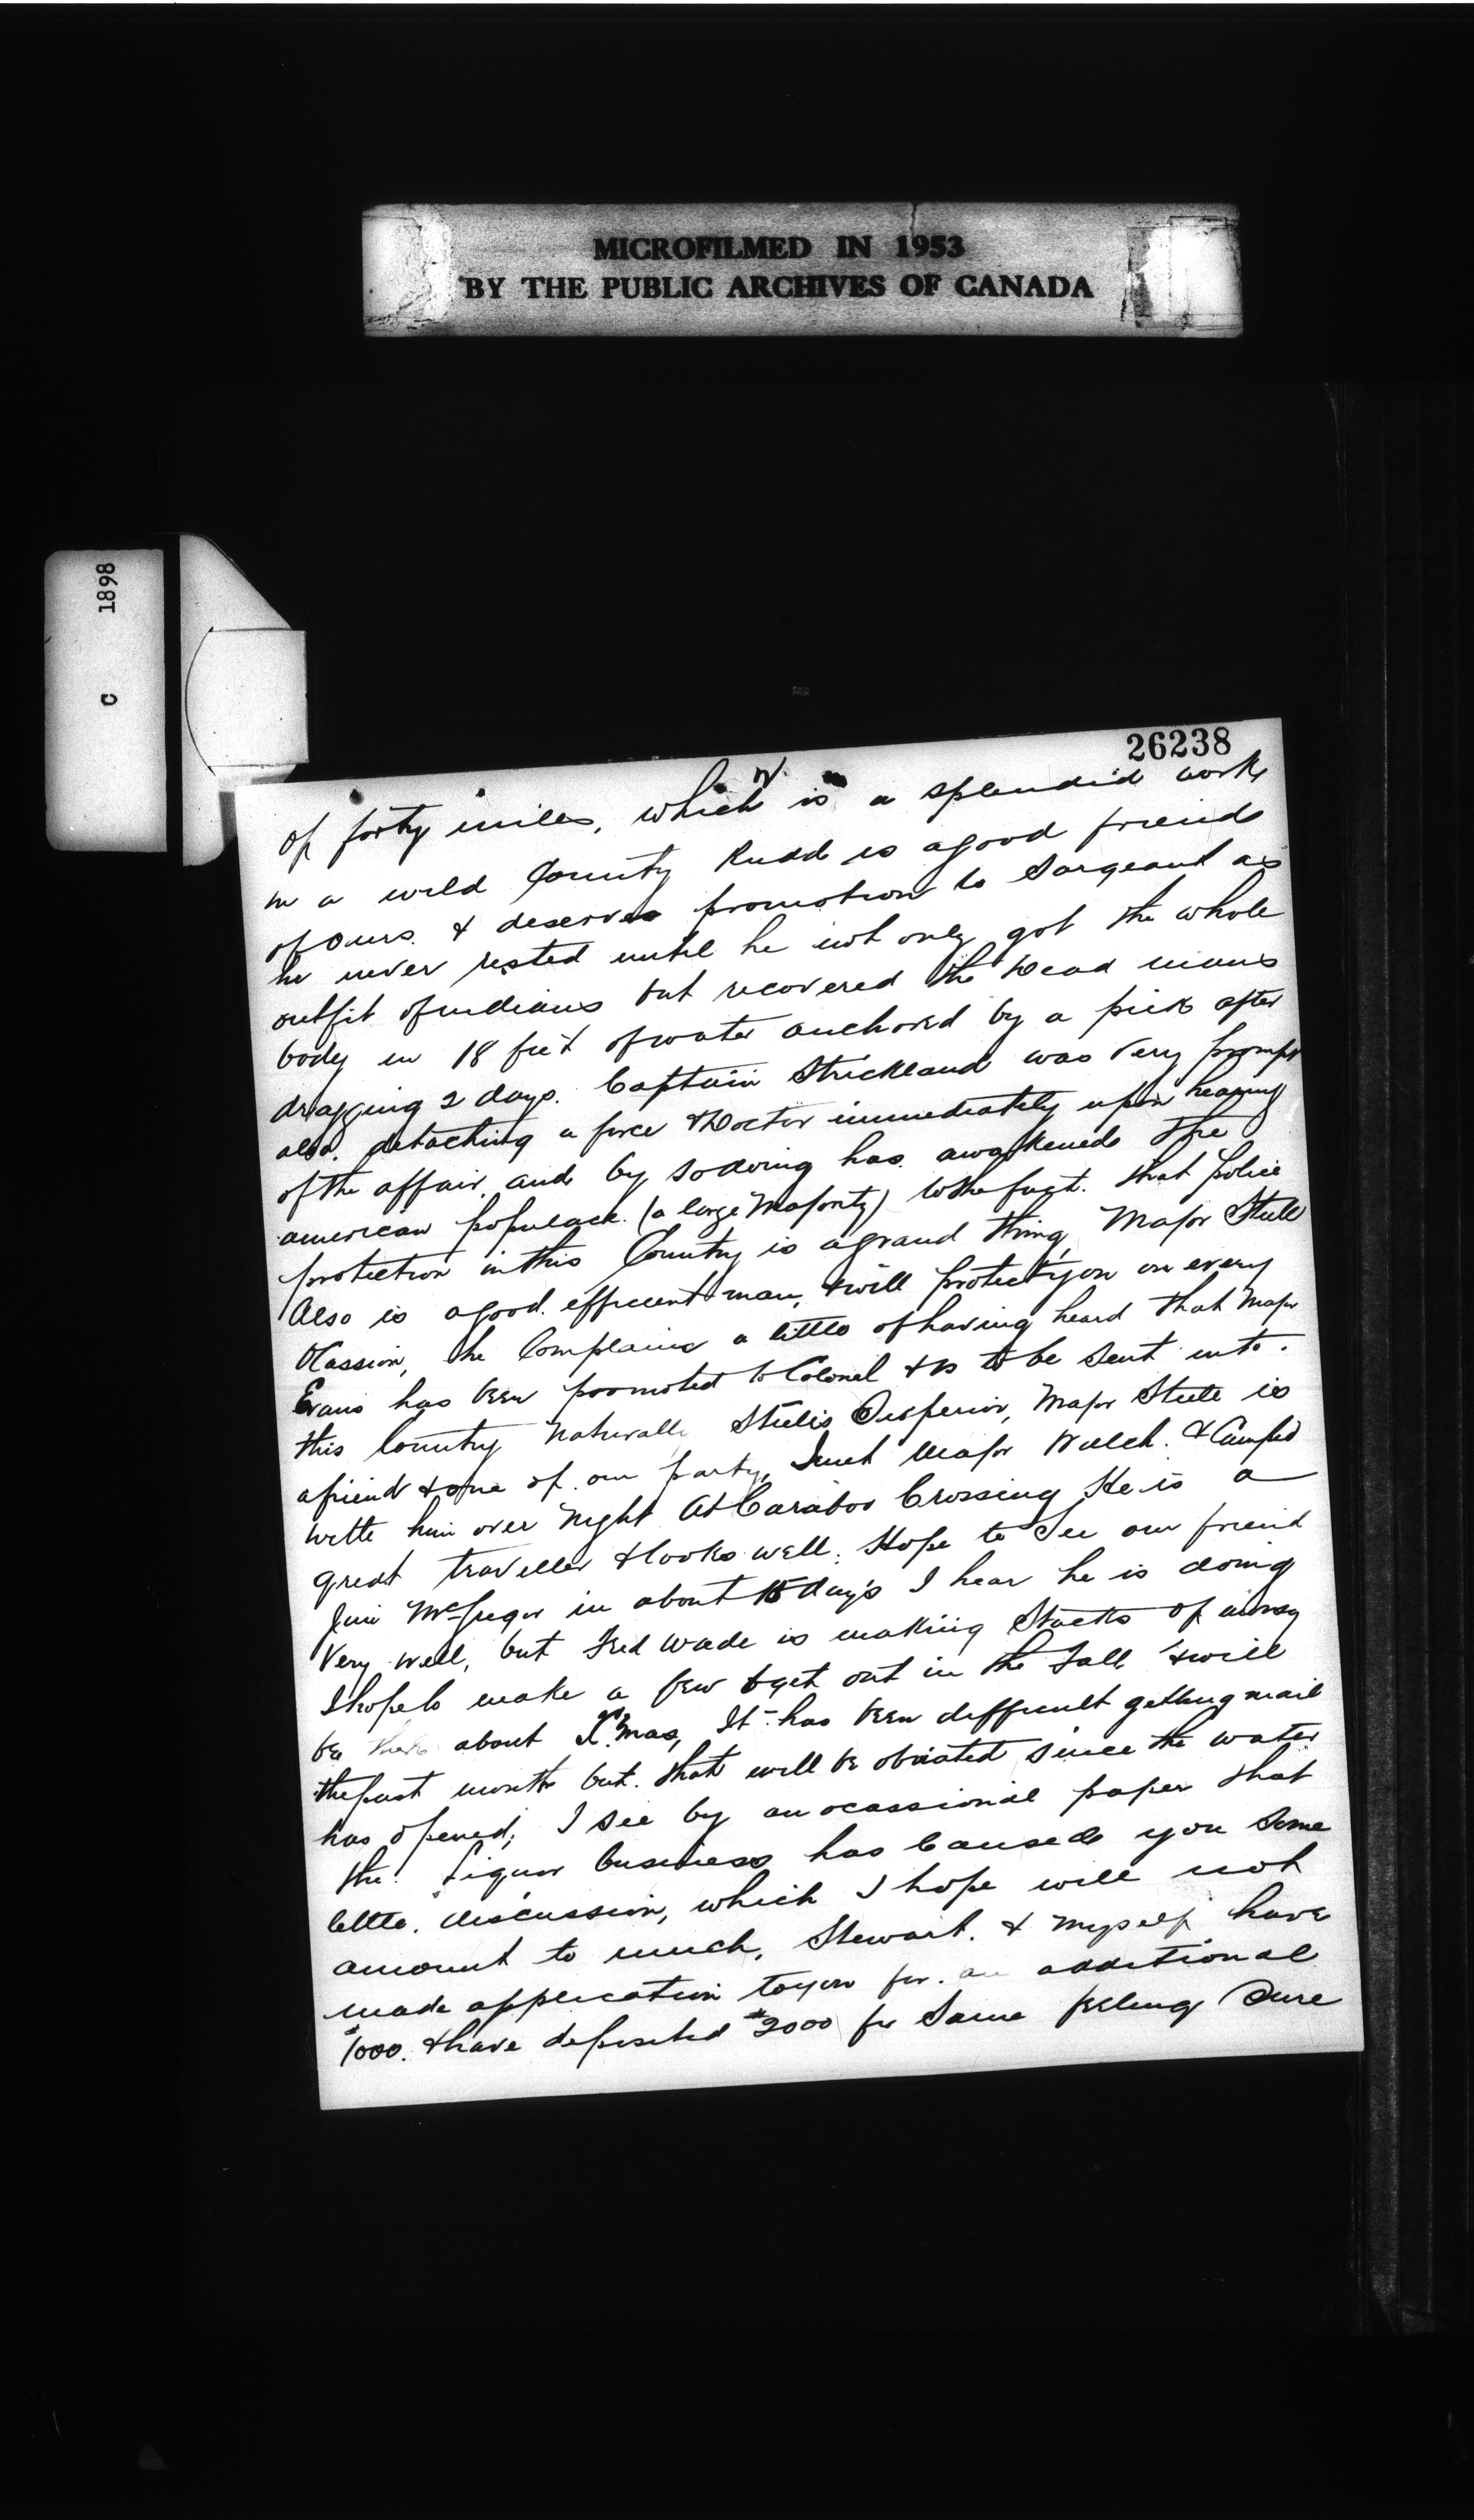 MICROFILMED IN 1953
BY THE PUBLIC ARCHIVES OF CANADA
C 1898
26238
of forty miles, which is a splendid work
in a wild Country Rudd is a good friend
of ours. & deserves promotion to Sargeant as
he never rested until he not only got the whole
outfit of indians but recovered the Dead mans
body in 18 feet of water anchored by a pick after
dragging 2 days. Captain Strickland was very prompt
also. detaching a force & Doctor immediately upon hearing
of the affair, and by so doing has awakened the
american populace. (a large Majority) to the fact. that police
protection in this Country is a grand thing, Major Steele
Also is a good. efficient man, & will protect you on every
Ocassion, he Complains a little of having heard that Major
Evans has been promoted to Colonel & is to be sent into.
this Country Naturally Steeles Superior, Major Steele is
a friend & one of. our party, I met Major Walch. & Camped
with him over Night At Caraboo Crossing He is a
great traveller & looks well. Hope to See our friend
Jim McGregor in about 15 days I hear he is doing
Very well, but Fred Wade is making Stacks of money
I hope to make a few & get out in the Fall & will
be there about X.mas, It has been difficult getting mail
the past month but. that will be obviated since the water
has opened; I see by an ocassional paper that
the liquor business has Caused you Some
little. discussion, which I hope will not
amount to much, Stewart. & myself have
made application to you for. an additional
$1000. & have deposited $2000 for Same feeling Sure